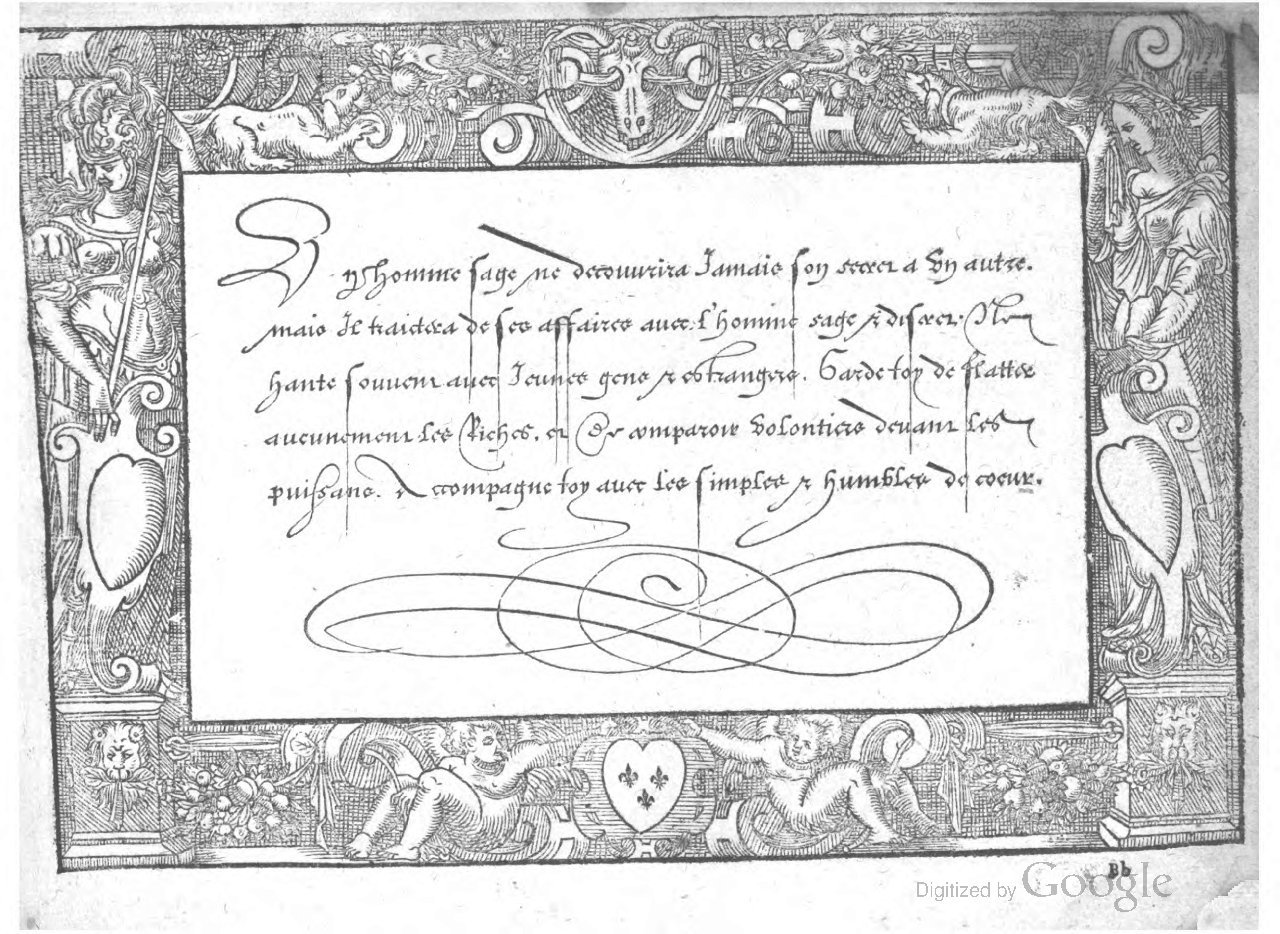 Vn homme sage ne decouurira Jamais son secret a Vn autre.
mais Il traictera de ses affaires auec l'homme sage & discret. Ne
hante souuent auec Jeunes gens & estrangers. Garde toy de flatter
aucunement les Riches. et De comparoir Volontiers deuant les
puissans. Accompagne toy auec les simples & humbles de coeur.
Bb
Digitized by Google